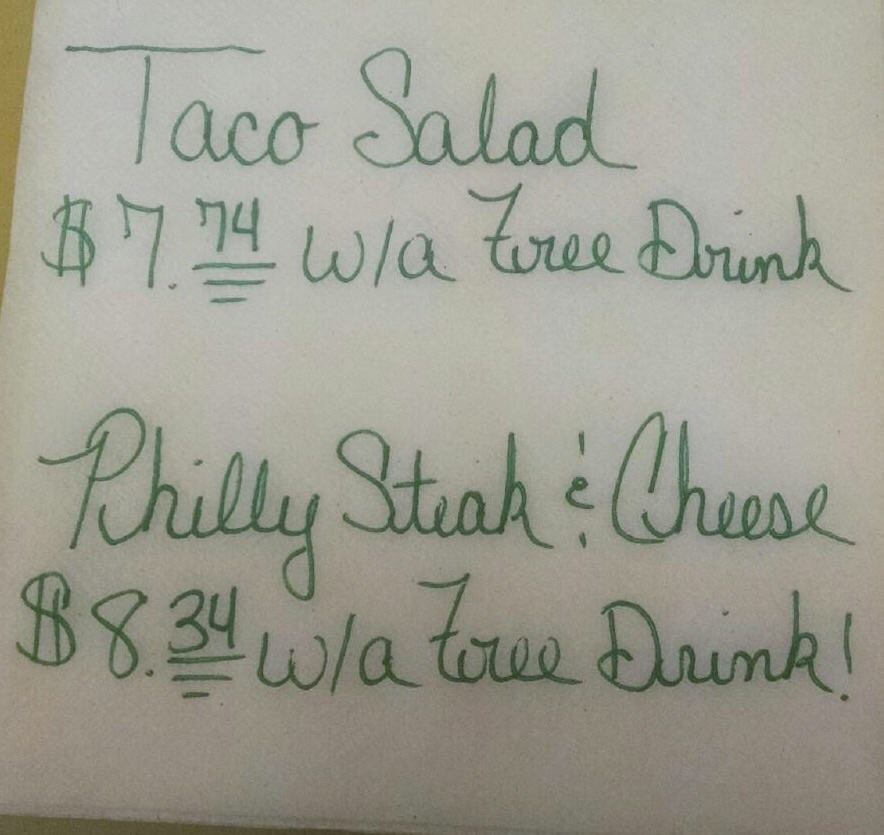 Taco Salad
$7.74 w/a Free Drink
Philly Steak & Cheese
$8.34 w/a Free Drink!